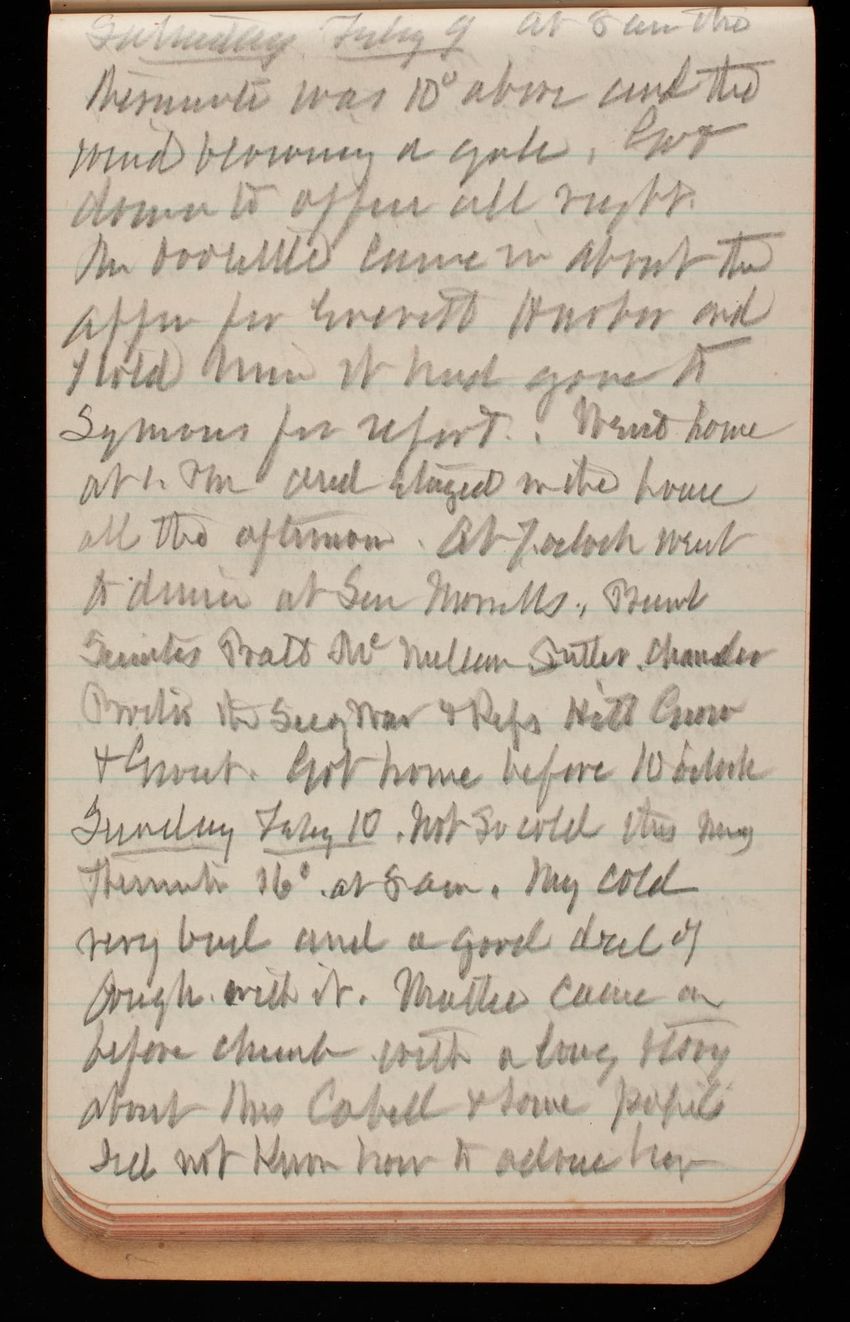 Saturday Feby 9 at 8 am the
Thermomtr was 10° above and the
wind blowing a gale, Got
down to office all right.
Mr Doolittle came in about the
appn for Everett Harbor and
I told him it had gone to
Symons for report. Went home
at 1. Pm and stayed in the house
all the afternoon. At 7.oclock went
to dinner at Sen Morrills.,
Senates Platt Mc Millan Butler. Chandler
Proctor the Secy War & Reps Hitt
& Grout. Got home before 10 oclock
Sunday Feby 10. Not so cold this mng
Thermomtr 16° at 8 am. My cold
very bad and a good deal of
cough with it. Mattie came in
before church with a long story
about Mrs Cabell & some pupils
Did not know how to advise her